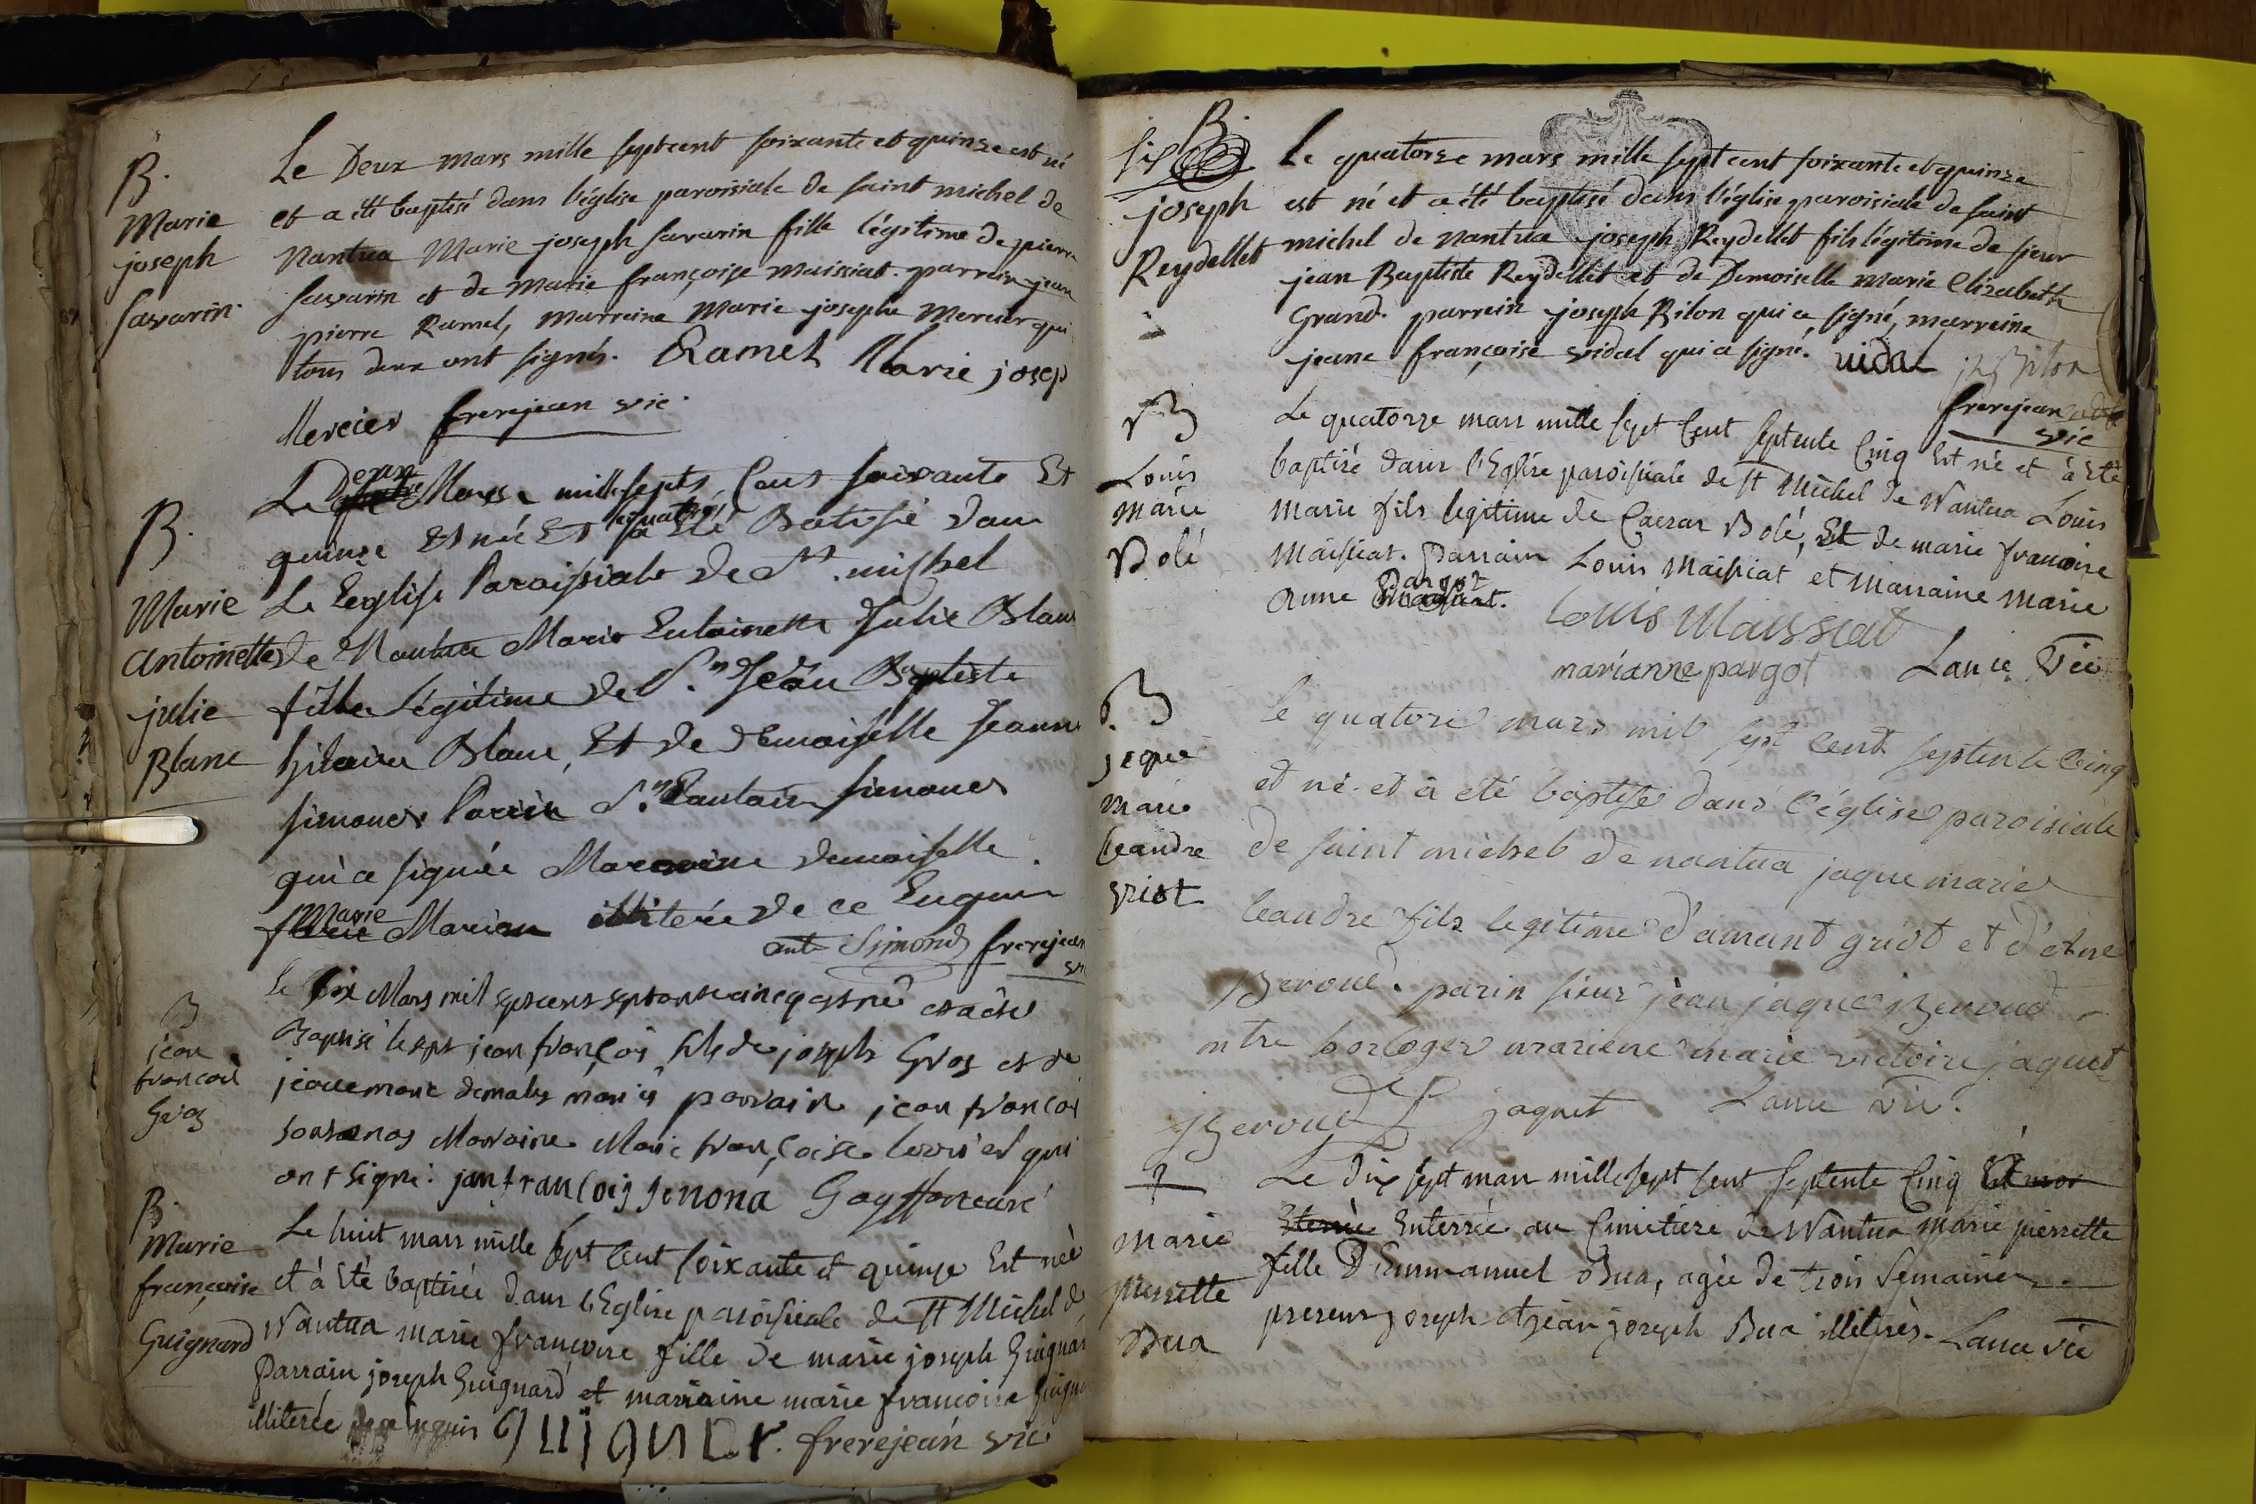 B.
Marie
joseph
savarin
Le Deux mars mille septcent soixante et quinze est né
et a été baptisé dans l'église paroisiale de saint michel de
Nantua Marie joseph savarin fille légitime de pierre
savarin et de Marie françoise maissiat. parrein jean
pierre Ramel, marreine Marie josephe Mercier qui
tous deux ont signés. Ramel Marie josep
Mercier frerejean vic.
B.
Marie
antoinette
julie
Blanc
Le Deux Mars mille septs Cens soixante Et
quinze Et née Et quatre a Eté Batisé dan
Le Leglise Paroissiale de St. mishel
de Nantua Marie Entoinette Julie Blanc
fille Légitime de Sr. Jean Baptiste
hilaire Blanc, Et de demoiselle Jeanne
simoner Parein Sr. simoner
qui a signée Mareine demoiselle
Marie Marion illiterée de ce Enquise
ant Simond frerejean
vic
B
jean
francois
Gros
le six Mars mil septcens septante cinq est né et a été
Baptisé le sept jean françois fils de joseph Gros et de
parrain jean françois
Marraine Marie françoise qui
ont signé: jan francois jenona Goyffon curé
B.
Marie
françoise
Guignard
Le huit mars mille sept Cent soixante et quinze Est née
et à Eté baptisée dans l'Eglise paroissiale de St Michel de
Nantua marie francoise fille de marie joseph Guignard
Parrain joseph Guignard et marraine marie francoise Guigna
illiterée de ce enquis frerejean vic
B.
joseph
Reydellet
Le quatorze mars mille sept cent soixante et quinze
est né et a été baptisé dans l'église paroisiale de saint
michel de Nantua joseph Reydellet fils légitime de sieur
jean Baptiste Reydellet et de Demoiselle marie Elizabeth
Grand. parrein joseph Bilon qui a signé, marreine
jeane françoise vidal qui a signé. vidal jh Bilon
frerejean
vic
B
Louis
Marie
Bolé
Le quatorze mars mille sept Cent septente Cinq Est né et à Eté
baptisé dans l'Eglise paroissiale de St Michel de Nantua Louis
Marie fils legitime de Caezar Bolé, Et de marie francoise
Maissiat. Parrain Louis Maissiat et Marraine Marie
Anne Pargot
Louis Maissiat
marianne pargot Lance Vic
B
jeque
marie
leandre
griot
le quatorze mars mil sept cent septente cinq
et né et à eté baptisé dans l'église paroisiale
de saint michel de nantua jaque marie
leandre fils legitime d'amant griot et d'
Beroud. parin sieur jean jaque Beroud
mtre horloger marene marie victoire jaquet
j Beroud jaquet Lance vic.
†
Marie
Pierrette
Bua
Le dix sept mars mille sept sent septente Cinq Est mor
Enterrée au Cimetiere de Nantua Marie pierrette
fille D'Emmanuel Bua, agée de trois semaines
presens joseph et jean joseph Bua illiterés. Lance Vic